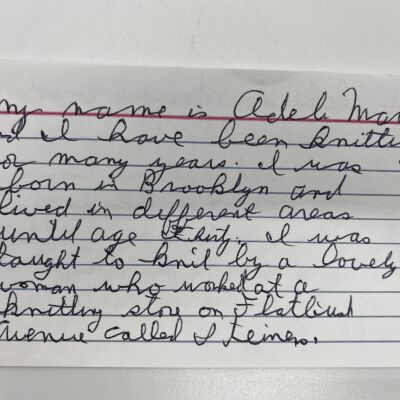 my name is Adele Mar
nd I have been knitti
or many years. I was
born in Brooklyn and
lived in different areas
until age I was
taught to knit by a lovely
woman who worked at a
knitting store on Flatbush
Avenue called Steiners.